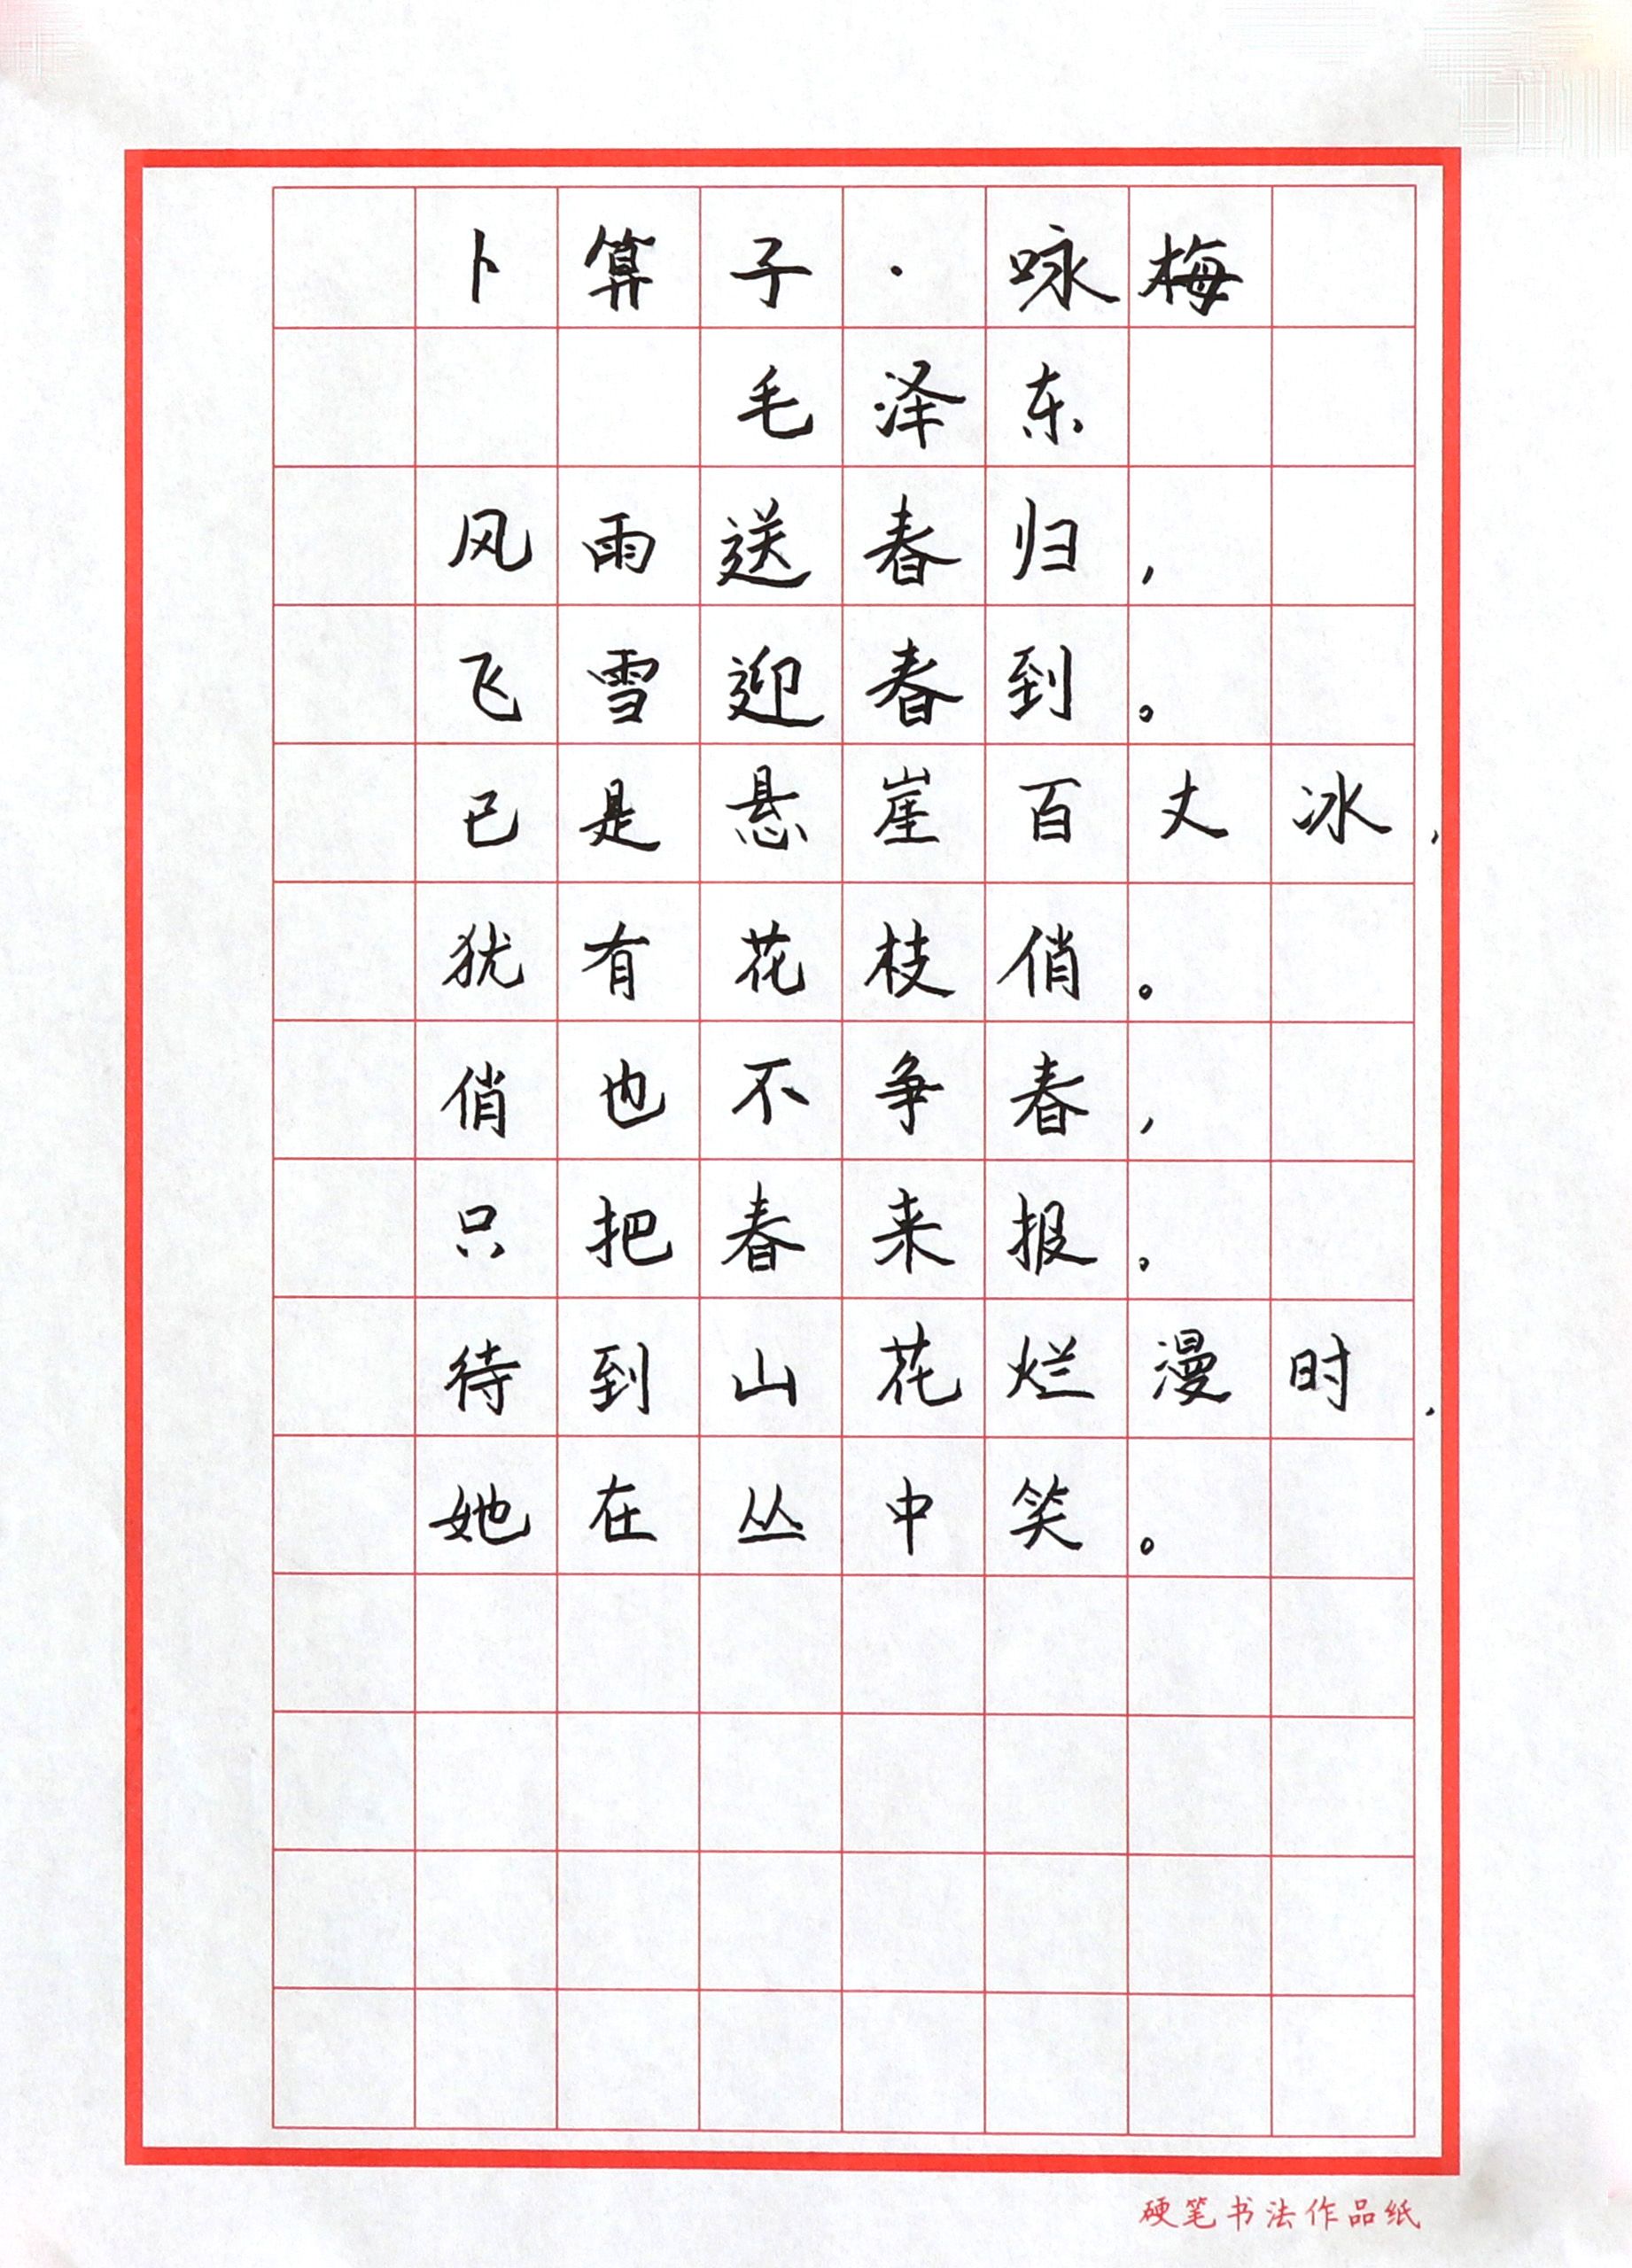 卜算子·咏梅
毛泽东
风雨送春归，
飞雪迎春到。
已是悬崖百丈冰，
犹有花枝俏。
俏也不争春，
只把春来报。
待到山花烂漫时，
她在丛中笑。
硬笔书法作品纸